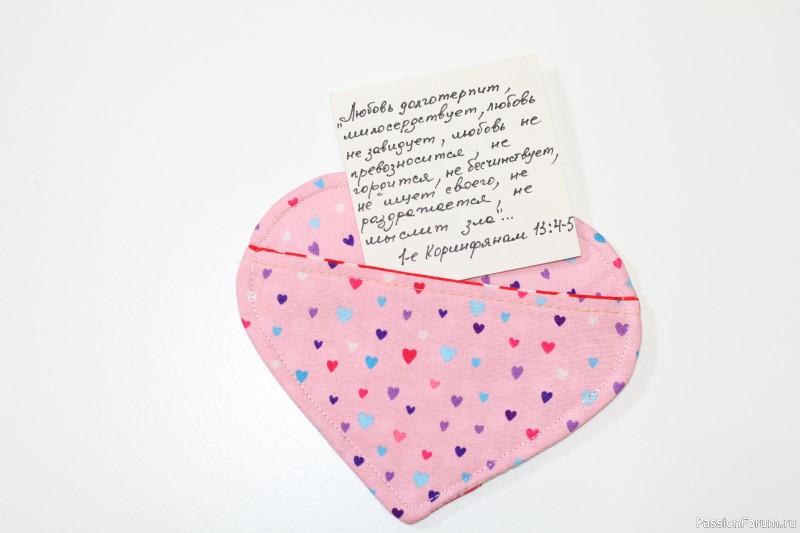 "Любовь долготерпит,
милосердствует, любовь
не завидует, любовь не
превозносится, не
гордится, не бесчинствует,
не ищет своего, не
раздражается, не
мыслит зла"...
1-е Коринфянам 13:4-5
PassionForum.ru